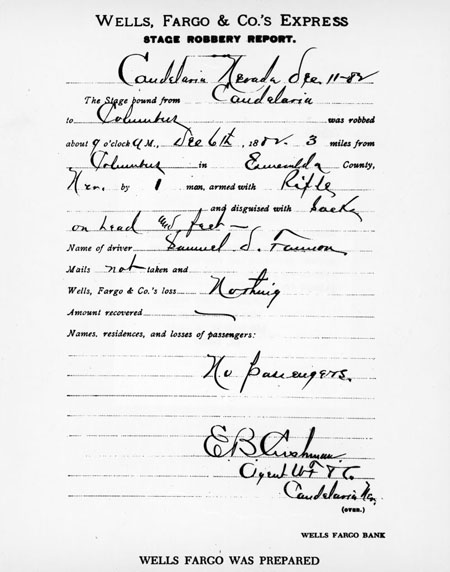 WELLS, FARGO & CO.'S EXPRESS
STAGE ROBBERY REPORT.
Candelaria Nevada Dec 11-82
The Stage bound from Candelaria
to Columbus was robbed
about 9 o'clock A M., Dec 6th, 1882. 3 miles from
Columbus in Esmeralda County,
Nev. by 1 man, armed with Rifle
and disguised with Sacks
on head and feet —
Name of driver Samuel S.
Mails not taken and
Wells, Fargo & Co.'s loss Nothing
Amount recovered —
Names, residences, and losses of passengers:
No passengers.
E.B. Cushman.
Agent W F & Co.
Candelaria Nev.
(OVER.)
WELLS FARGO BANK
WELLS FARGO WAS PREPARED